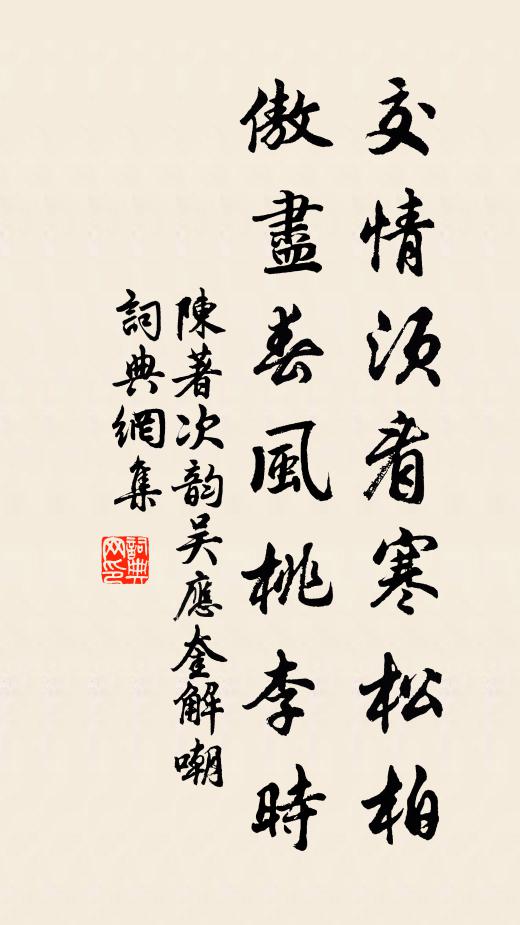 交情須看寒松柏
傲盡春風桃李時
陳著次韵吴應奎解嘲
詞典網集
詞典網印